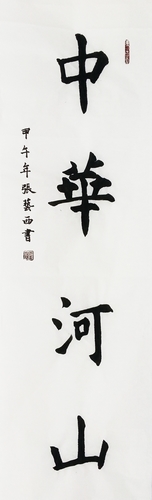 中華河山
甲午年張藝西書